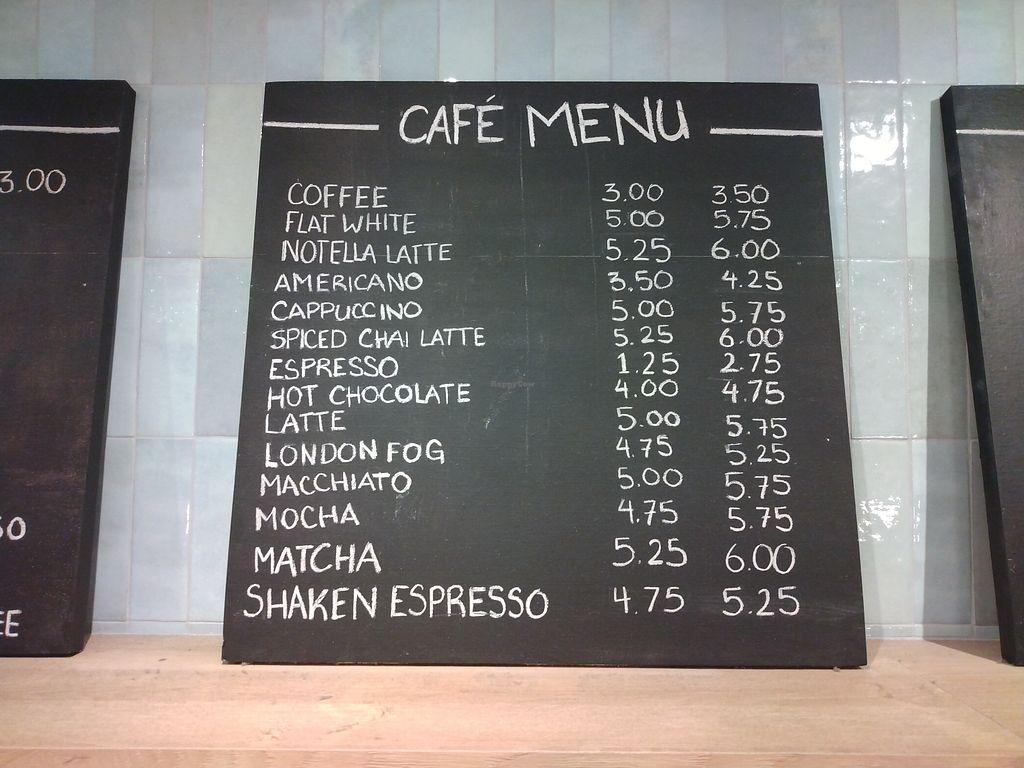 3.00
50
EE
CAFÉ MENU
COFFEE 3.00 3.50
FLAT WHITE 5.00 5.75
NOTELLA LATTE 5.25 6.00
AMERICANO 3.50 4.25
CAPPUCCINO 5.00 5.75
SPICED CHAI LATTE 5.25 6.00
ESPRESSO 1.25 2.75
HOT CHOCOLATE 4.00 4.75
LATTE 5.00 5.75
LONDON FOG 4.75 5.25
MACCHIATO 5.00 5.75
MOCHA 4.75 5.75
MATCHA 5.25 6.00
SHAKEN ESPRESSO 4.75 5.25
HappyCow